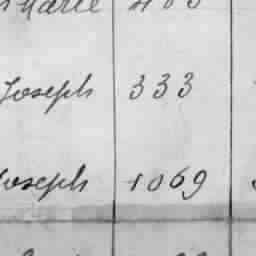 Marie
Joseph 333
Joseph 1069